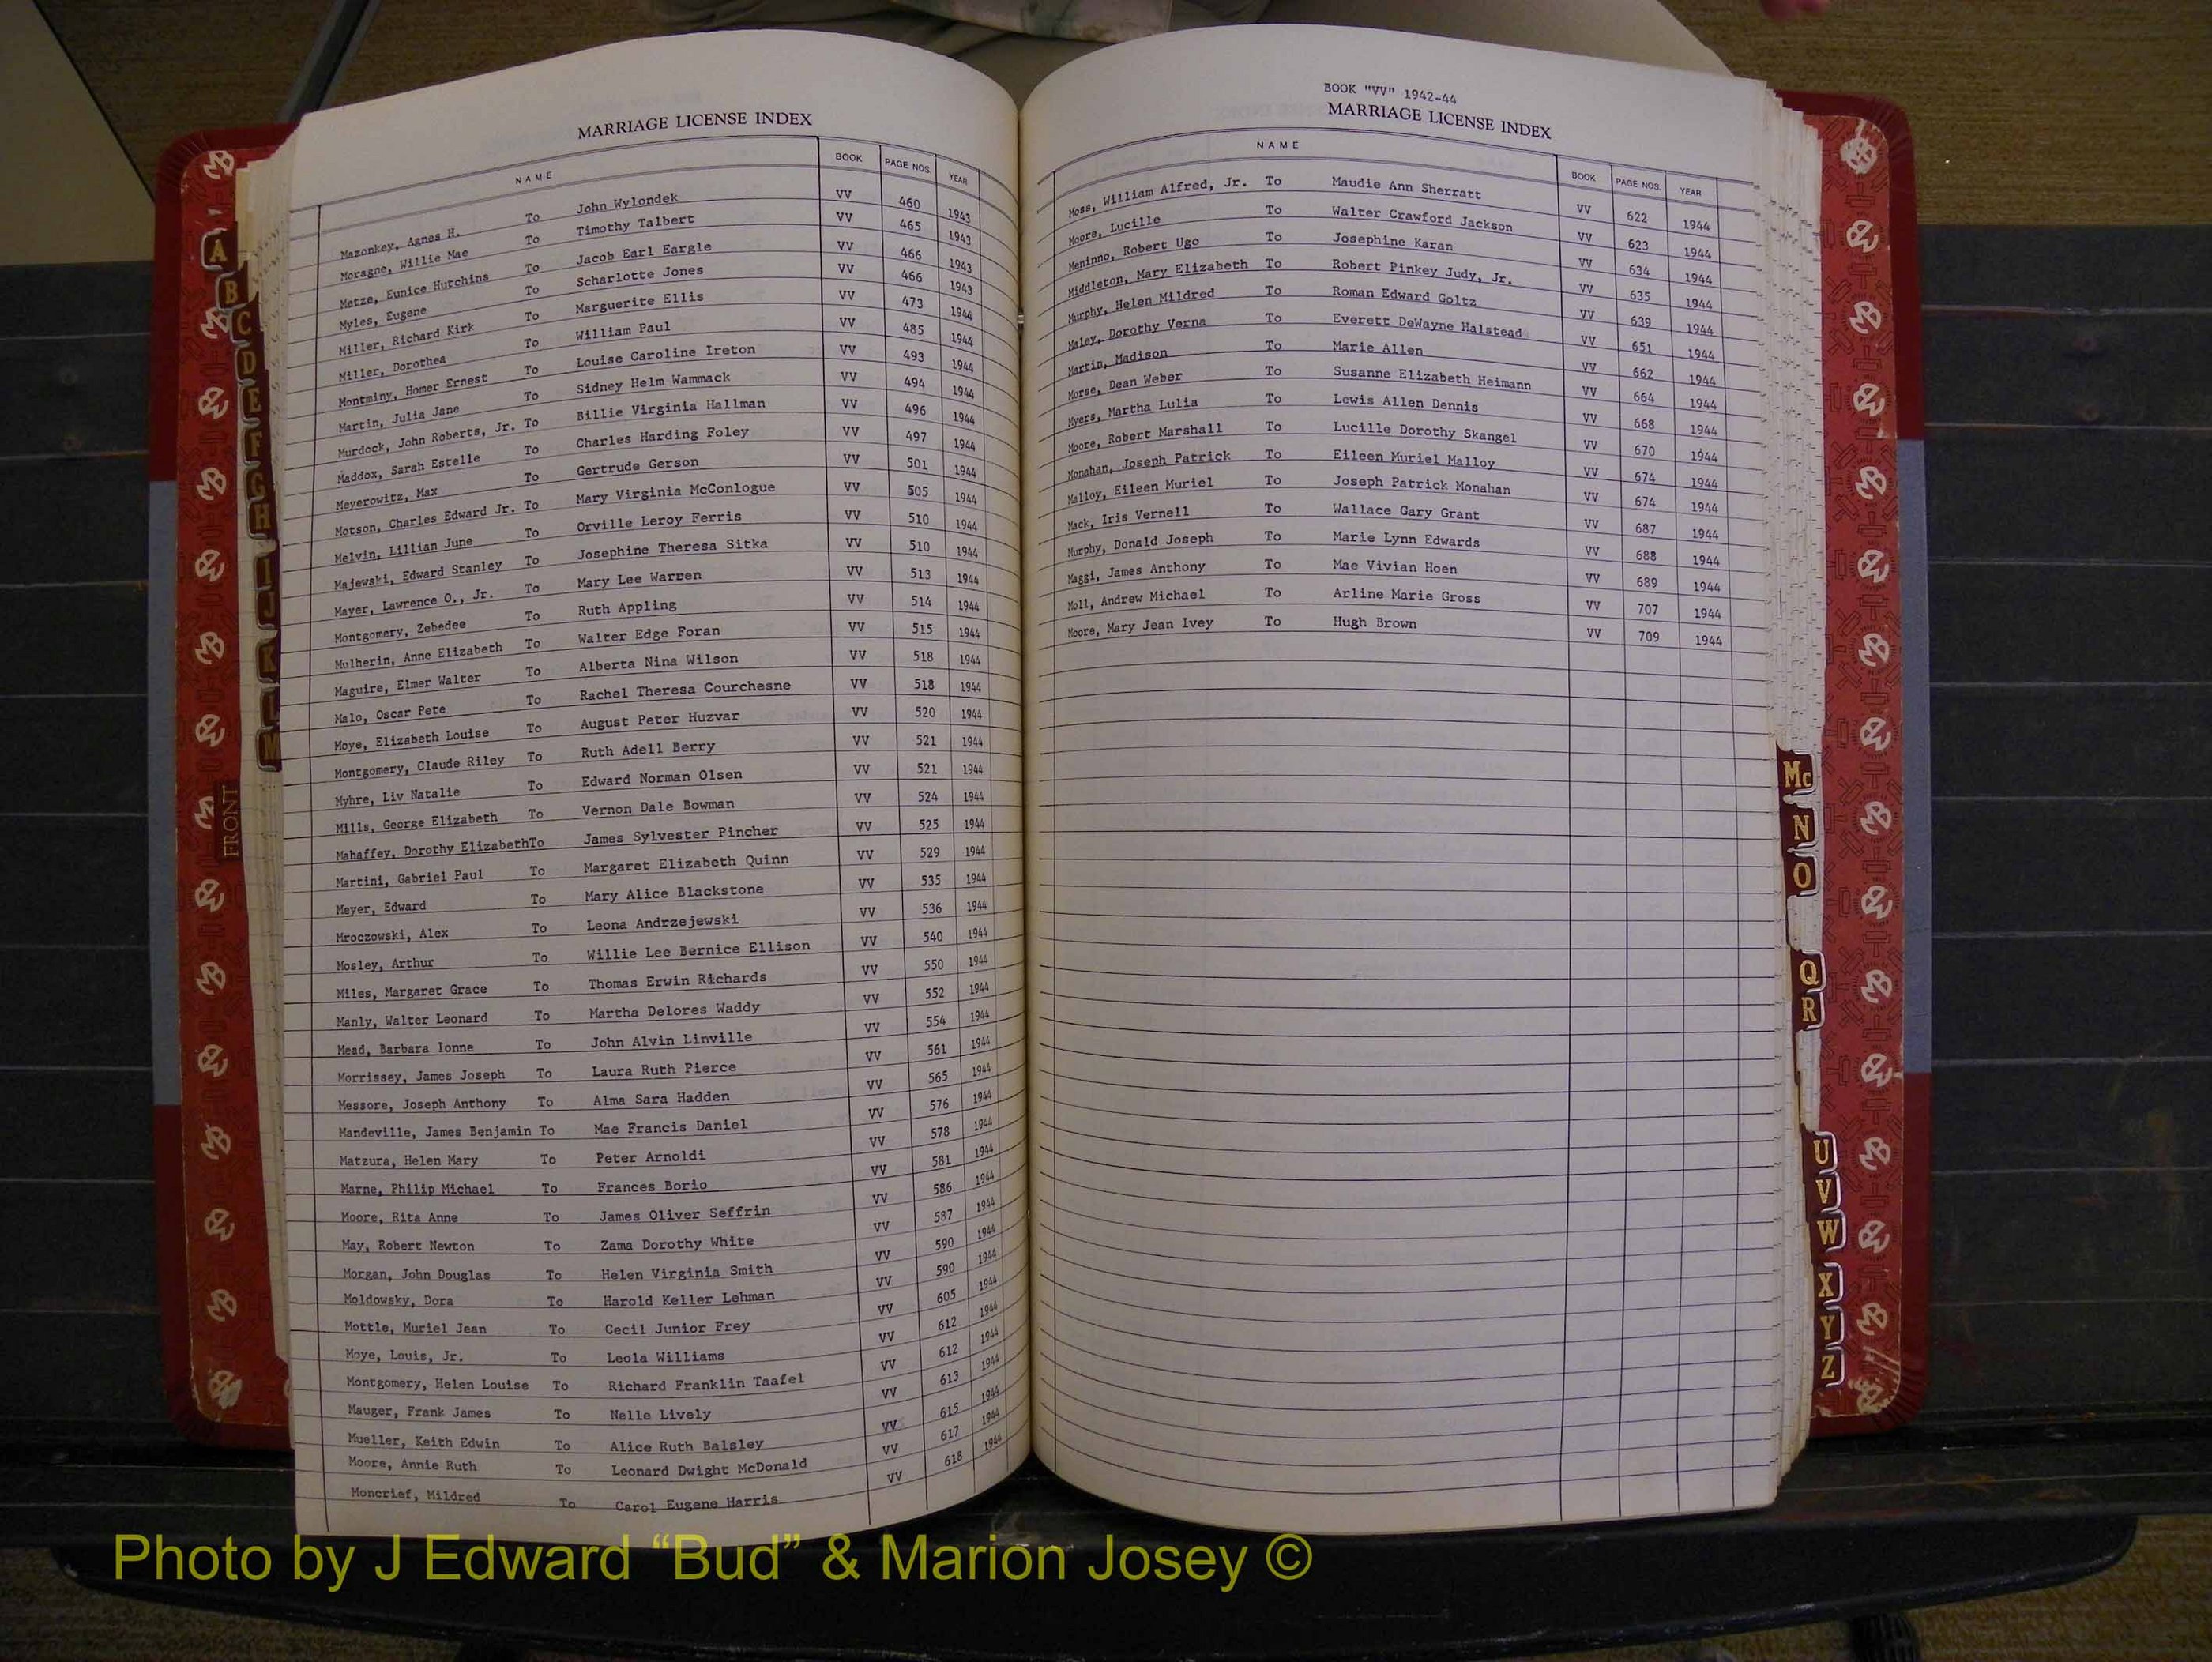 MARRIAGE LICENSE INDEX
NAME BOOK PAGE NOS. YEAR
Mazonkey, Agnes H. To John Wylondek VV 460 1943
Moragne, Willie Mae To Timothy Talbert VV 465 1943
Metze, Eunice Hutchins To Jacob Earl Eargle VV 466 1943
Myles, Eugene To Scharlotte Jones VV 466 1943
Miller, Richard Kirk To Marguerite Ellis VV 473 1944
Miller, Dorothea To William Paul VV 485 1944
Montminy, Homer Ernest To Louise Caroline Ireton VV 493 1944
Martin, Julia Jane To Sidney Helm Wammack VV 494 1944
Murdock, John Roberts, Jr. To Billie Virginia Hallman VV 496 1944
Maddox, Sarah Estelle To Charles Harding Foley VV 497 1944
Meyerowitz, Max To Gertrude Gerson VV 501 1944
Motson, Charles Edward Jr. To Mary Virginia McConlogue VV 505 1944
Melvin, Lillian June To Orville Leroy Ferris VV 510 1944
Majewski, Edward Stanley To Josephine Theresa Sitka VV 510 1944
Mayer, Lawrence O., Jr. To Mary Lee Warren VV 513 1944
Montgomery, Zebedee To Ruth Appling VV 514 1944
Mulherin, Anne Elizabeth To Walter Edge Foran VV 515 1944
Maguire, Elmer Walter To Alberta Nina Wilson VV 518 1944
Malo, Oscar Pete To Rachel Theresa Courchesne VV 518 1944
Moye, Elizabeth Louise To August Peter Huzvar VV 520 1944
Montgomery, Claude Riley To Ruth Adell Berry VV 521 1944
Myhre, Liv Natalie To Edward Norman Olsen VV 521 1944
Mills, George Elizabeth To Vernon Dale Bowman VV 524 1944
Mahaffey, Dorothy ElizabethTo James Sylvester Pincher VV 525 1944
Martini, Gabriel Paul To Margaret Elizabeth Quinn VV 529 1944
Meyer, Edward To Mary Alice Blackstone VV 535 1944
Mroczowski, Alex To Leona Andrzejewski VV 536 1944
Mosley, Arthur To Willie Lee Bernice Ellison VV 540 1944
Miles, Margaret Grace To Thomas Erwin Richards VV 550 1944
Manly, Walter Leonard To Martha Delores Waddy VV 552 1944
Mead, Barbara Ionne To John Alvin Linville VV 554 1944
Morrissey, James Joseph To Laura Ruth Pierce VV 561 1944
Messore, Joseph Anthony To Alma Sara Hadden VV 565 1944
Mandeville, James Benjamin To Mae Francis Daniel VV 576 1944
Matzura, Helen Mary To Peter Arnoldi VV 578 1944
Marne, Philip Michael To Frances Borio VV 581 1944
Moore, Rita Anne To James Oliver Seffrin VV 586 1944
May, Robert Newton To Zama Dorothy White VV 587 1944
Morgan, John Douglas To Helen Virginia Smith VV 590 1944
Moldowsky, Dora To Harold Keller Lehman VV 590 1944
Mottle, Muriel Jean To Cecil Junior Frey VV 605 1944
Moye, Louis, Jr. To Leola Williams VV 612 1944
Montgomery, Helen Louise To Richard Franklin Taafel VV 612 1944
Mauger, Frank James To Nelle Lively VV 613 1944
Mueller, Keith Edwin To Alice Ruth Balsley VV 615 1944
Moore, Annie Ruth To Leonard Dwight McDonald VV 617 1944
Moncrief, Mildred To Carol Eugene Harris VV 618 1944
BOOK "VV" 1942-44
MARRIAGE LICENSE INDEX
NAME BOOK PAGE NOS. YEAR
Moss, William Alfred, Jr. To Maudie Ann Sherratt VV 622 1944
Moore, Lucille To Walter Crawford Jackson VV 623 1944
Meninno, Robert Ugo To Josephine Karan VV 634 1944
Middleton, Mary Elizabeth To Robert Pinkey Judy, Jr. VV 635 1944
Murphy, Helen Mildred To Roman Edward Goltz VV 639 1944
Maley, Dorothy Verna To Everett DeWayne Halstead VV 651 1944
Martin, Madison To Marie Allen VV 662 1944
Morse, Dean Weber To Susanne Elizabeth Heimann VV 664 1944
Myers, Martha Lulia To Lewis Allen Dennis VV 668 1944
Moore, Robert Marshall To Lucille Dorothy Skangel VV 670 1944
Monahan, Joseph Patrick To Eileen Muriel Malloy VV 674 1944
Malloy, Eileen Muriel To Joseph Patrick Monahan VV 674 1944
Mack, Iris Vernell To Wallace Gary Grant VV 687 1944
Murphy, Donald Joseph To Marie Lynn Edwards VV 688 1944
Maggi, James Anthony To Mae Vivian Hoen VV 689 1944
Moll, Andrew Michael To Arline Marie Gross VV 707 1944
Moore, Mary Jean Ivey To Hugh Brown VV 709 1944
A
B
C
D
E
F
G
H
I
J
K
L
M
FRONT
Mc
N
O
Q
R
U
V
W
X
Y
Z
Photo by J Edward “Bud” & Marion Josey ©